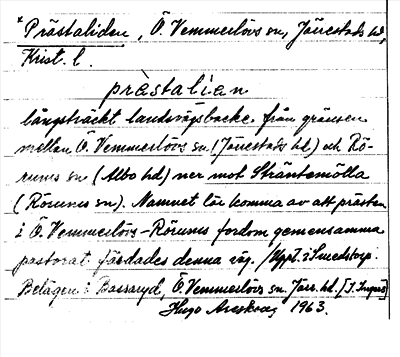 *Prästaliden, Ö. Vemmerlövs sn, Järrestads hd,
Krist. l.
prästalian
långsträckt landsvägsbacke från gränsen
mellan Ö. Vemmerlövs sn (Järrestads hd.) och Rö-
rums sn (Albo hd) ner mot Sträntemölla
(Rörums sn). Namnet lär komma av att prästen
i Ö. Vemmerlövs-Rörums fordom gemensamma
pastorat färdades denna väg. /Uppt. i Smedstorp.
Belägen i Bassaryd, Ö. Vemmerlövs sn. Järr. hd. [J. Ingers]
Hugo Areskoug 1963.